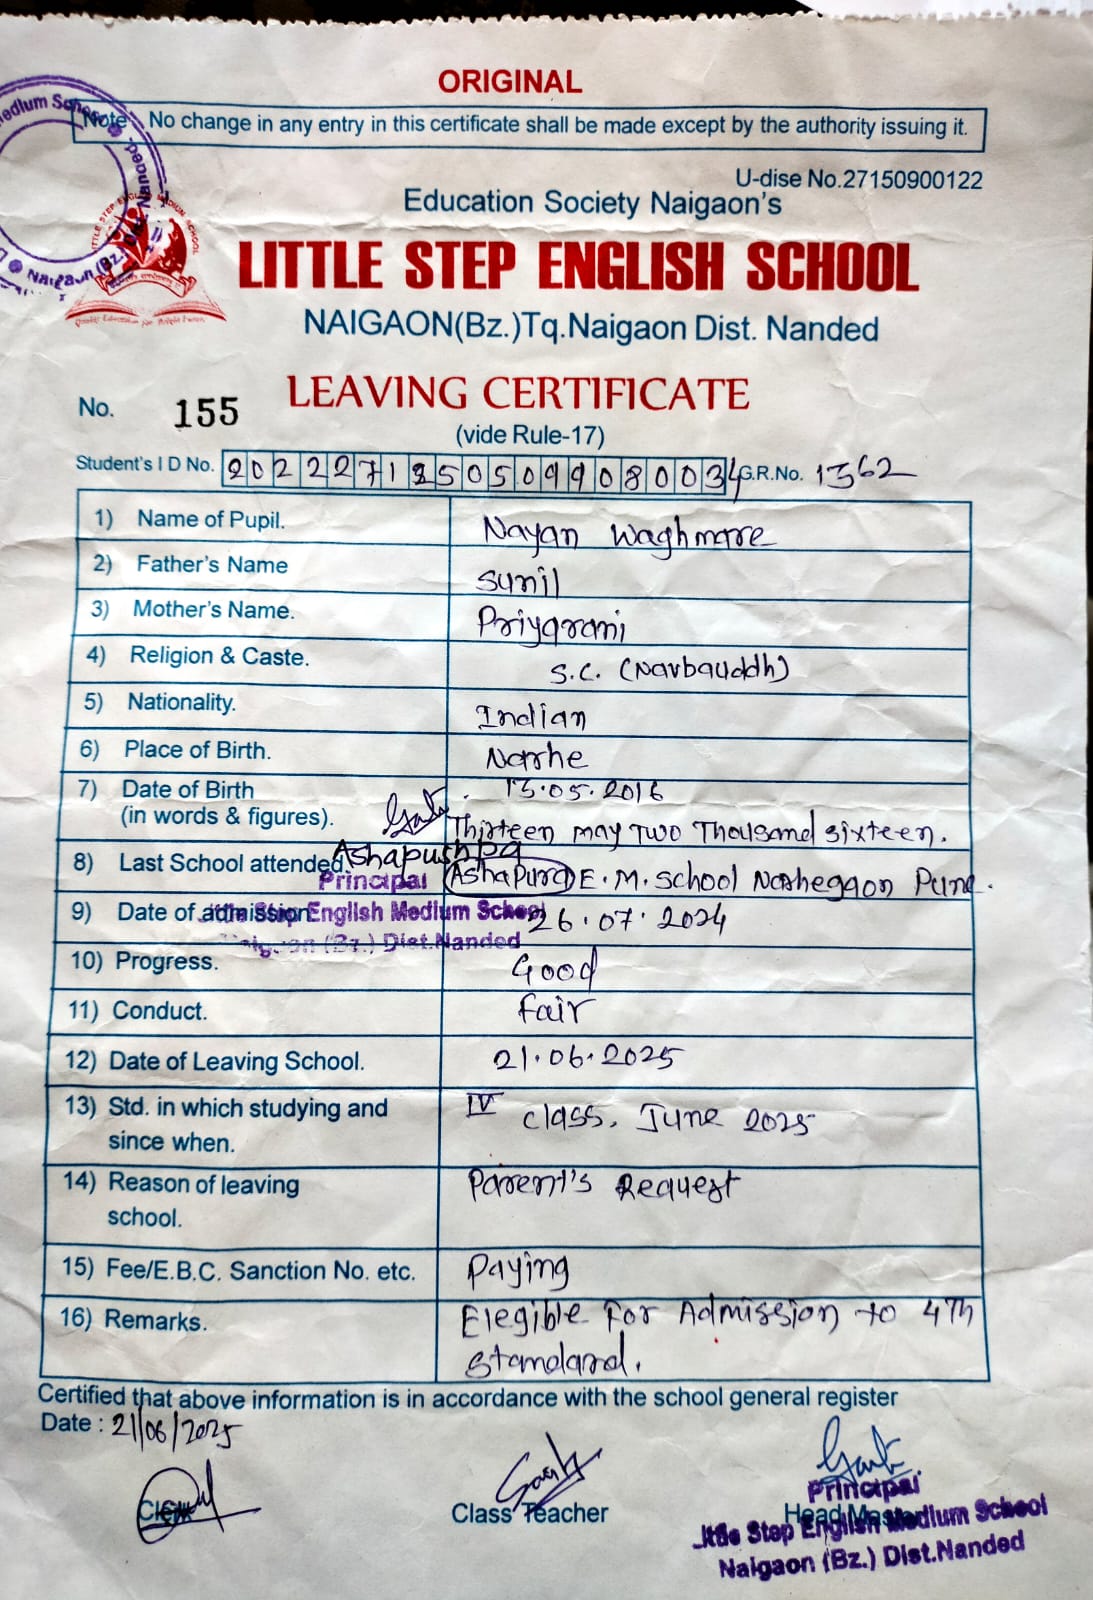 ORIGINAL
Note: No change in any entry in this certificate shall be made except by the authority issuing it.
U-dise No.27150900122
Education Society Naigaon's
LITTLE STEP ENGLISH SCHOOL
NAIGAON(Bz.)Tq.Naigaon Dist. Nanded
LEAVING CERTIFICATE
No. 155
(vide Rule-17)
Student's I D No. G.R.No. 1362
1) Name of Pupil. Nayan Waghmare
2) Father's Name Sunil
3) Mother's Name. Priyarani
4) Religion & Caste. S.C. (Navbauddh)
5) Nationality. Indian
6) Place of Birth. Narhe
7) Date of Birth 13.05.2016
(in words & figures). Thirteen may Two Thousand sixteen.
Ashapushpa
8) Last School attended. Ashapura E.M. School Narhegaon Pune.
Principal
9) Date of admission 26.07.2024
English Medium School
Naigaon (Bz.) Dist.Nanded
10) Progress. Good
11) Conduct. Fair
12) Date of Leaving School. 21.06.2025
13) Std. in which studying and IV class. June 2025
since when.
14) Reason of leaving Parent's Request
school.
15) Fee/E.B.C. Sanction No. etc. Paying
16) Remarks. Elegible For Admission to 4Th
Standard.
Certified that above information is in accordance with the school general register
Date : 21/06/2025
Clerk
Class Teacher
Principal
Head Master
Little Step English Medium School
Naigaon (Bz.) Dist.Nanded